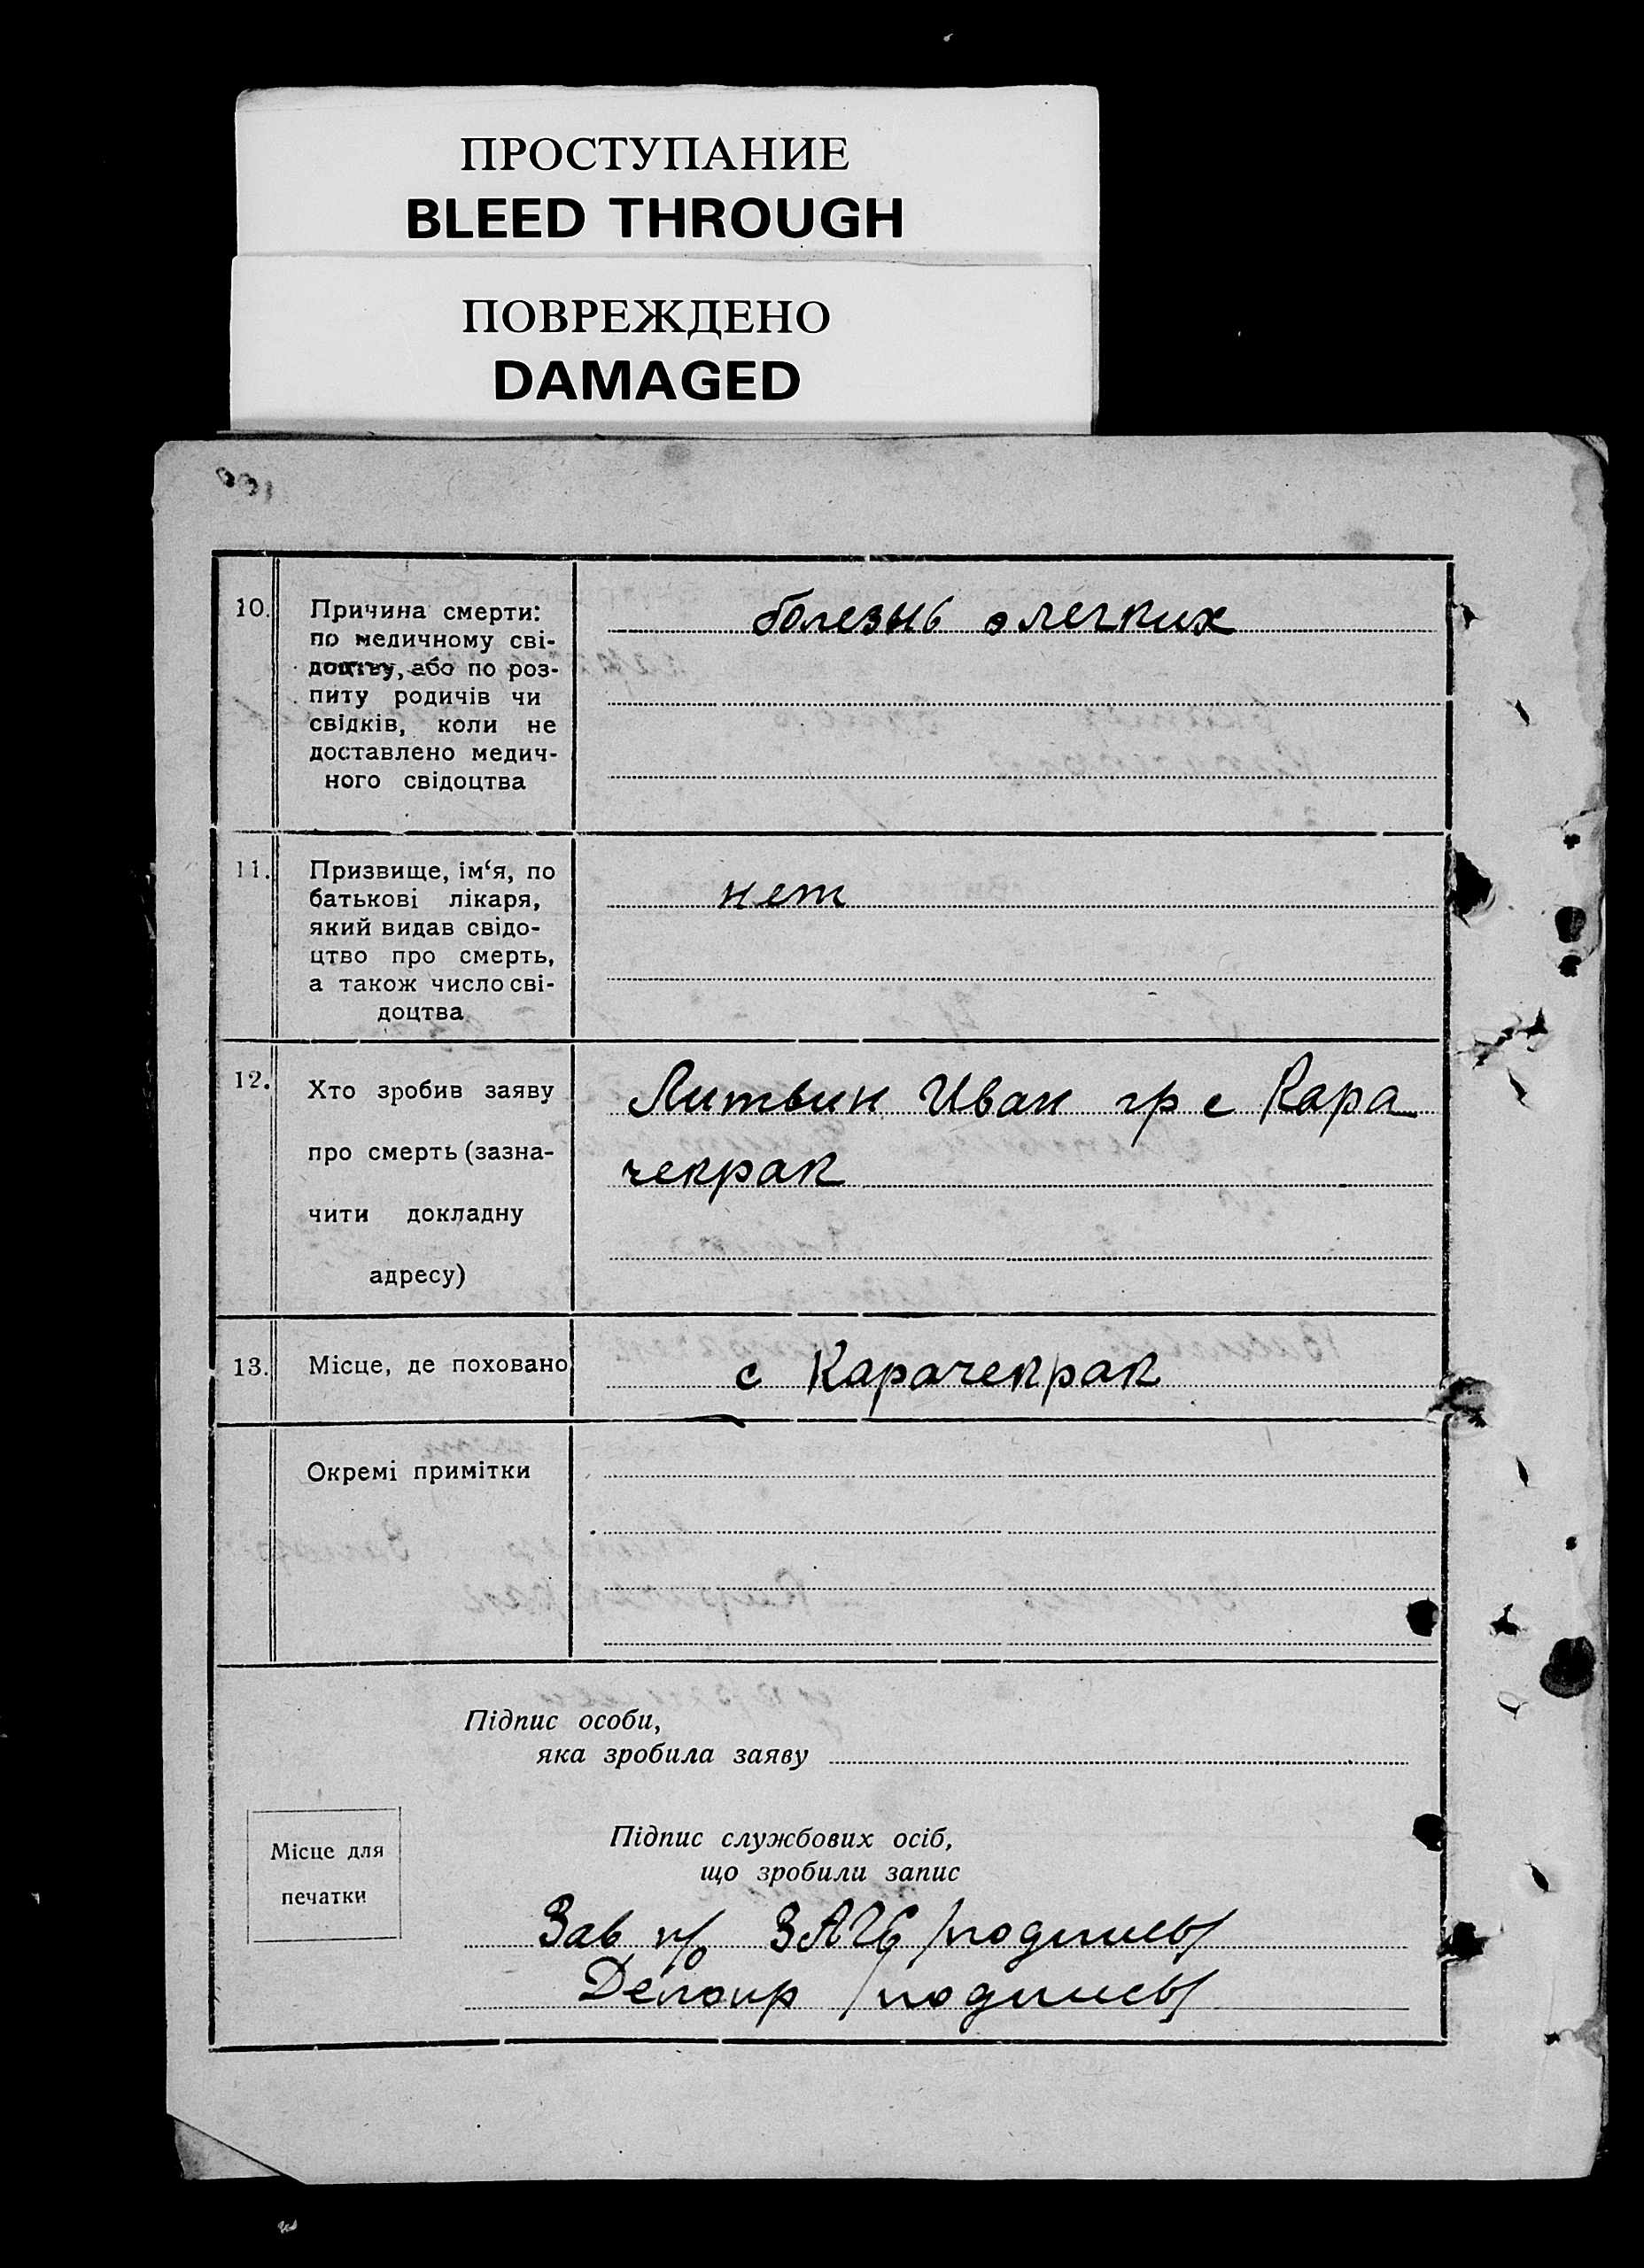 ПРОСТУПАНИЕ
BLEED THROUGH
ПОВРЕЖДЕНО
DAMAGED
10. Причина смерти: болезнь легких
по медичному сві-
доцтву, або по роз-
питу родичів чи
свідків, коли не
доставлено медич-
ного свідоцтва
11. Призвище, ім‘я, по
батькові лікаря, нет
який видав свідо-
цтво про смерть,
а також число сві-
доцтва
12. Хто зробив заяву Литвин Иван гр с Кара
про смерть (зазна- чекрак
чити докладну
адресу)
13. Місце, де поховано с Карачекрак
Окремі примітки
Підпис особи,
яка зробила заяву
Місце для
печатки
Підпис службових осіб,
що зробили запис
Зав /подпись/
/подпись/